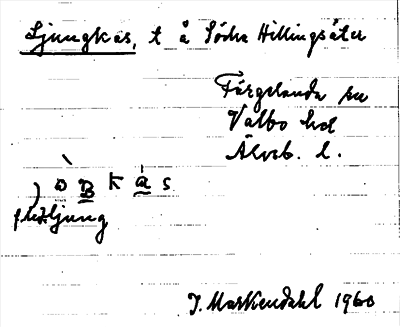 Ljungkas, t å Södra Hillingsäter
Färgelanda sn
Valbo hd
Älvsb. l.
ljung
J. Markendahl 1960